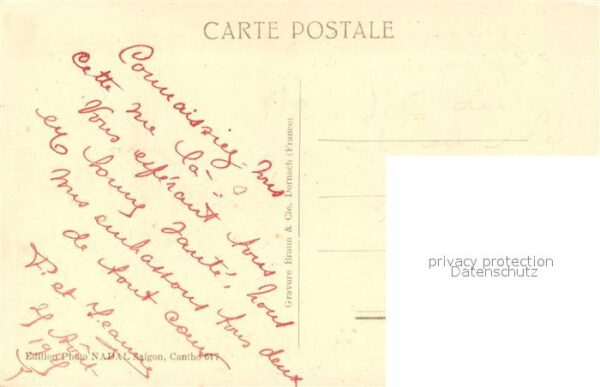 CARTE POSTALE
Connaissiez-vous
cette vue là ?
Vous espérant tous
en bonne santé, nous
vous embrassons tous deux
de tout cœur
Août
Gravure Braun & Cie, Dornach (France)
Edition Photo NADAL Saïgon, Cantho 617
privacy protection
Datenschutz